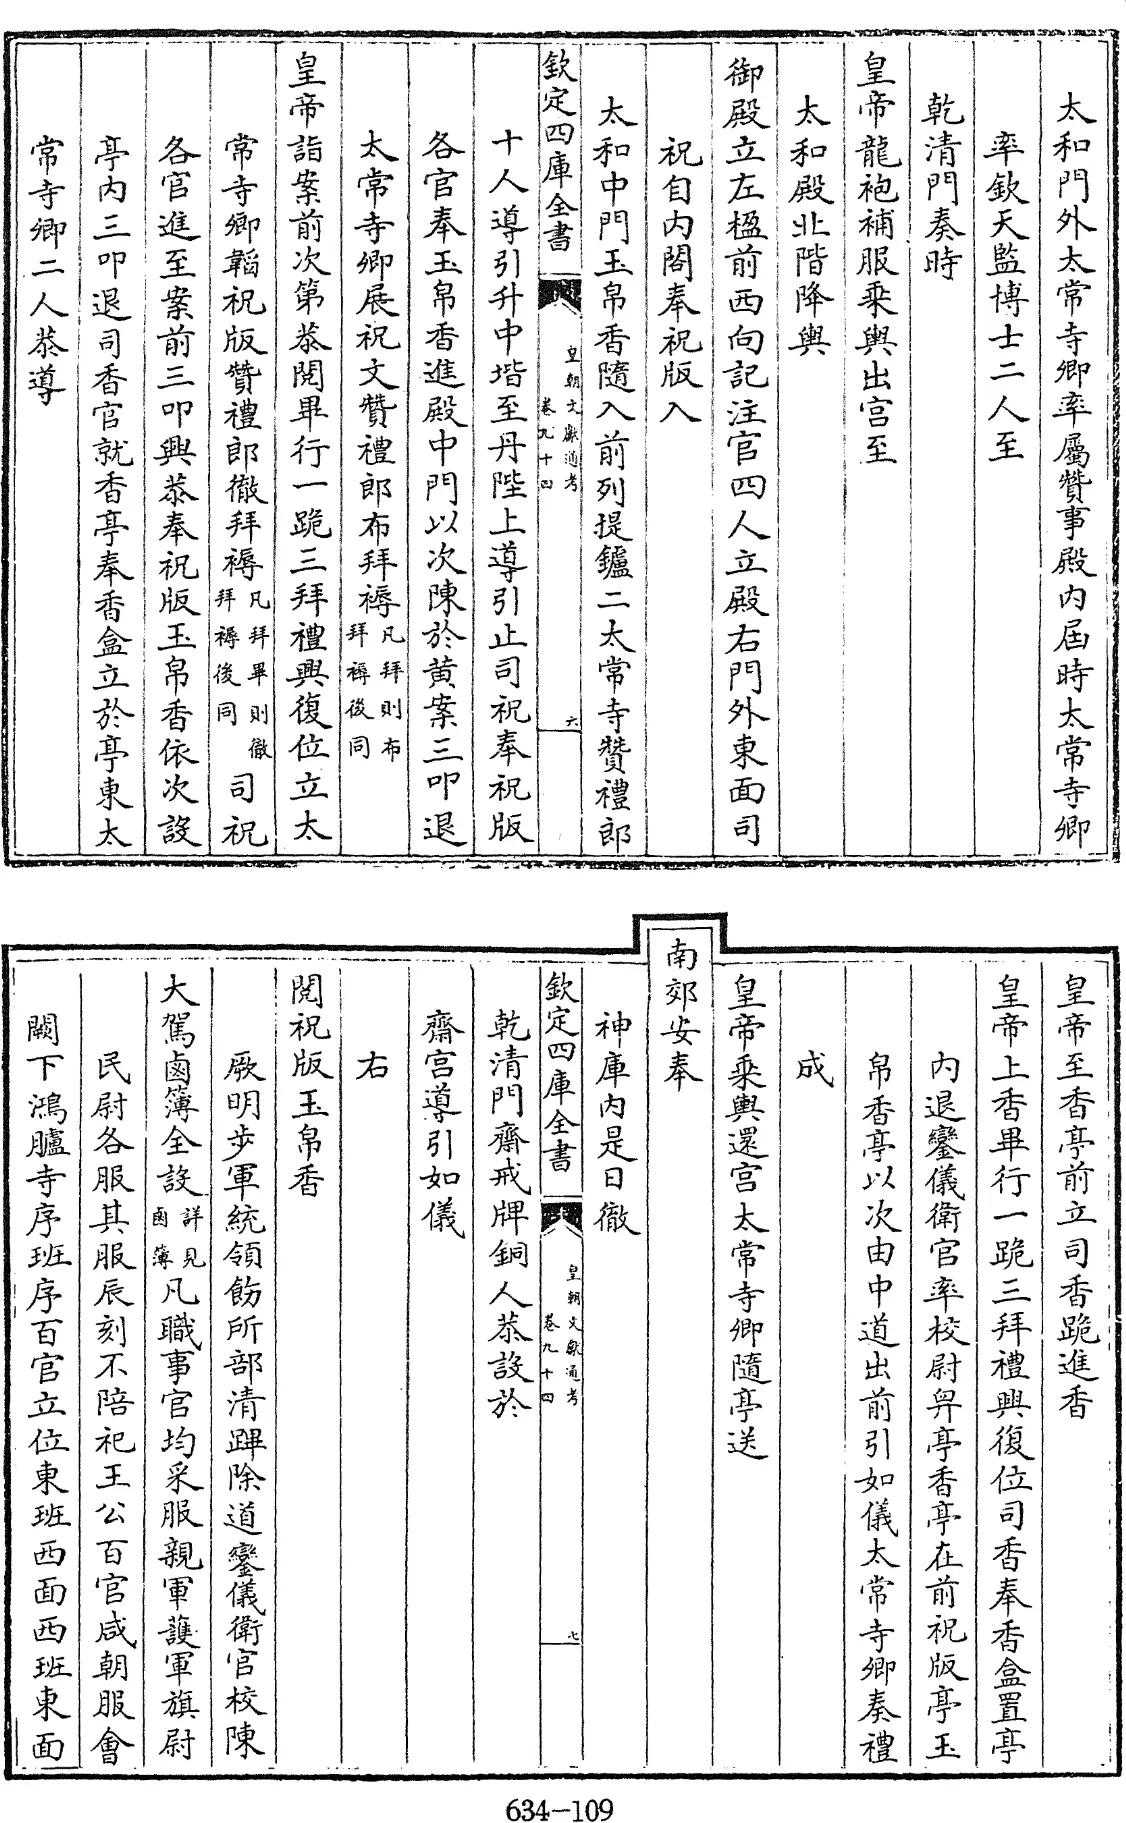 太和門外太常寺卿率屬贊事殿内屆時太常寺卿
率欽天監博士二人至
乾清門奏時
皇帝龍袍補服乘輿出宫至
太和殿北階降輿
御殿立左楹前西向記注官四人立殿右門外東面司
祝自内閣奉祝版入
太和中門玉帛香隨入前列提鑪二太常寺贊禮郎
欽定四庫全書
皇朝文獻通考
卷九十四
六
十人導引升中堦至丹陛上導引止司祝奉祝版
各官奉玉帛香進殿中門以次陳於黄案三叩退
太常寺卿展祝文贊禮郎布拜褥凡拜則布拜褥後同
皇帝詣案前次第恭閲畢行一跪三拜禮興復位立太
常寺卿韜祝版贊禮郎徹拜褥凡拜畢則徹拜褥後同司祝
各官進至案前三叩興恭奉祝版玉帛香依次設
亭内三叩退司香官就香亭奉香盒立於亭東太
常寺卿二人恭導
皇帝至香亭前立司香跪進香
皇帝上香畢行一跪三拜禮興復位司香奉香盒置亭
内退鑾儀衛官率校尉舁亭香亭在前祝版亭玉
帛香亭以次由中道出前引如儀太常寺卿奏禮
成
皇帝乘輿還宫太常寺卿隨亭送
南郊安奉
神庫内是日徹
欽定四庫全書
皇朝文獻通考
卷九十四
七
乾清門齋戒牌銅人恭設於
齋宫導引如儀
右
閲祝版玉帛香
厥明步軍統領飭所部清蹕除道鑾儀衛官校陳
大駕鹵簿全設詳見鹵簿凡職事官均采服親軍護軍旗尉
民尉各服其服辰刻不陪祀王公百官咸朝服會
闕下鴻臚寺序班序百官立位東班西面西班東面
634-109